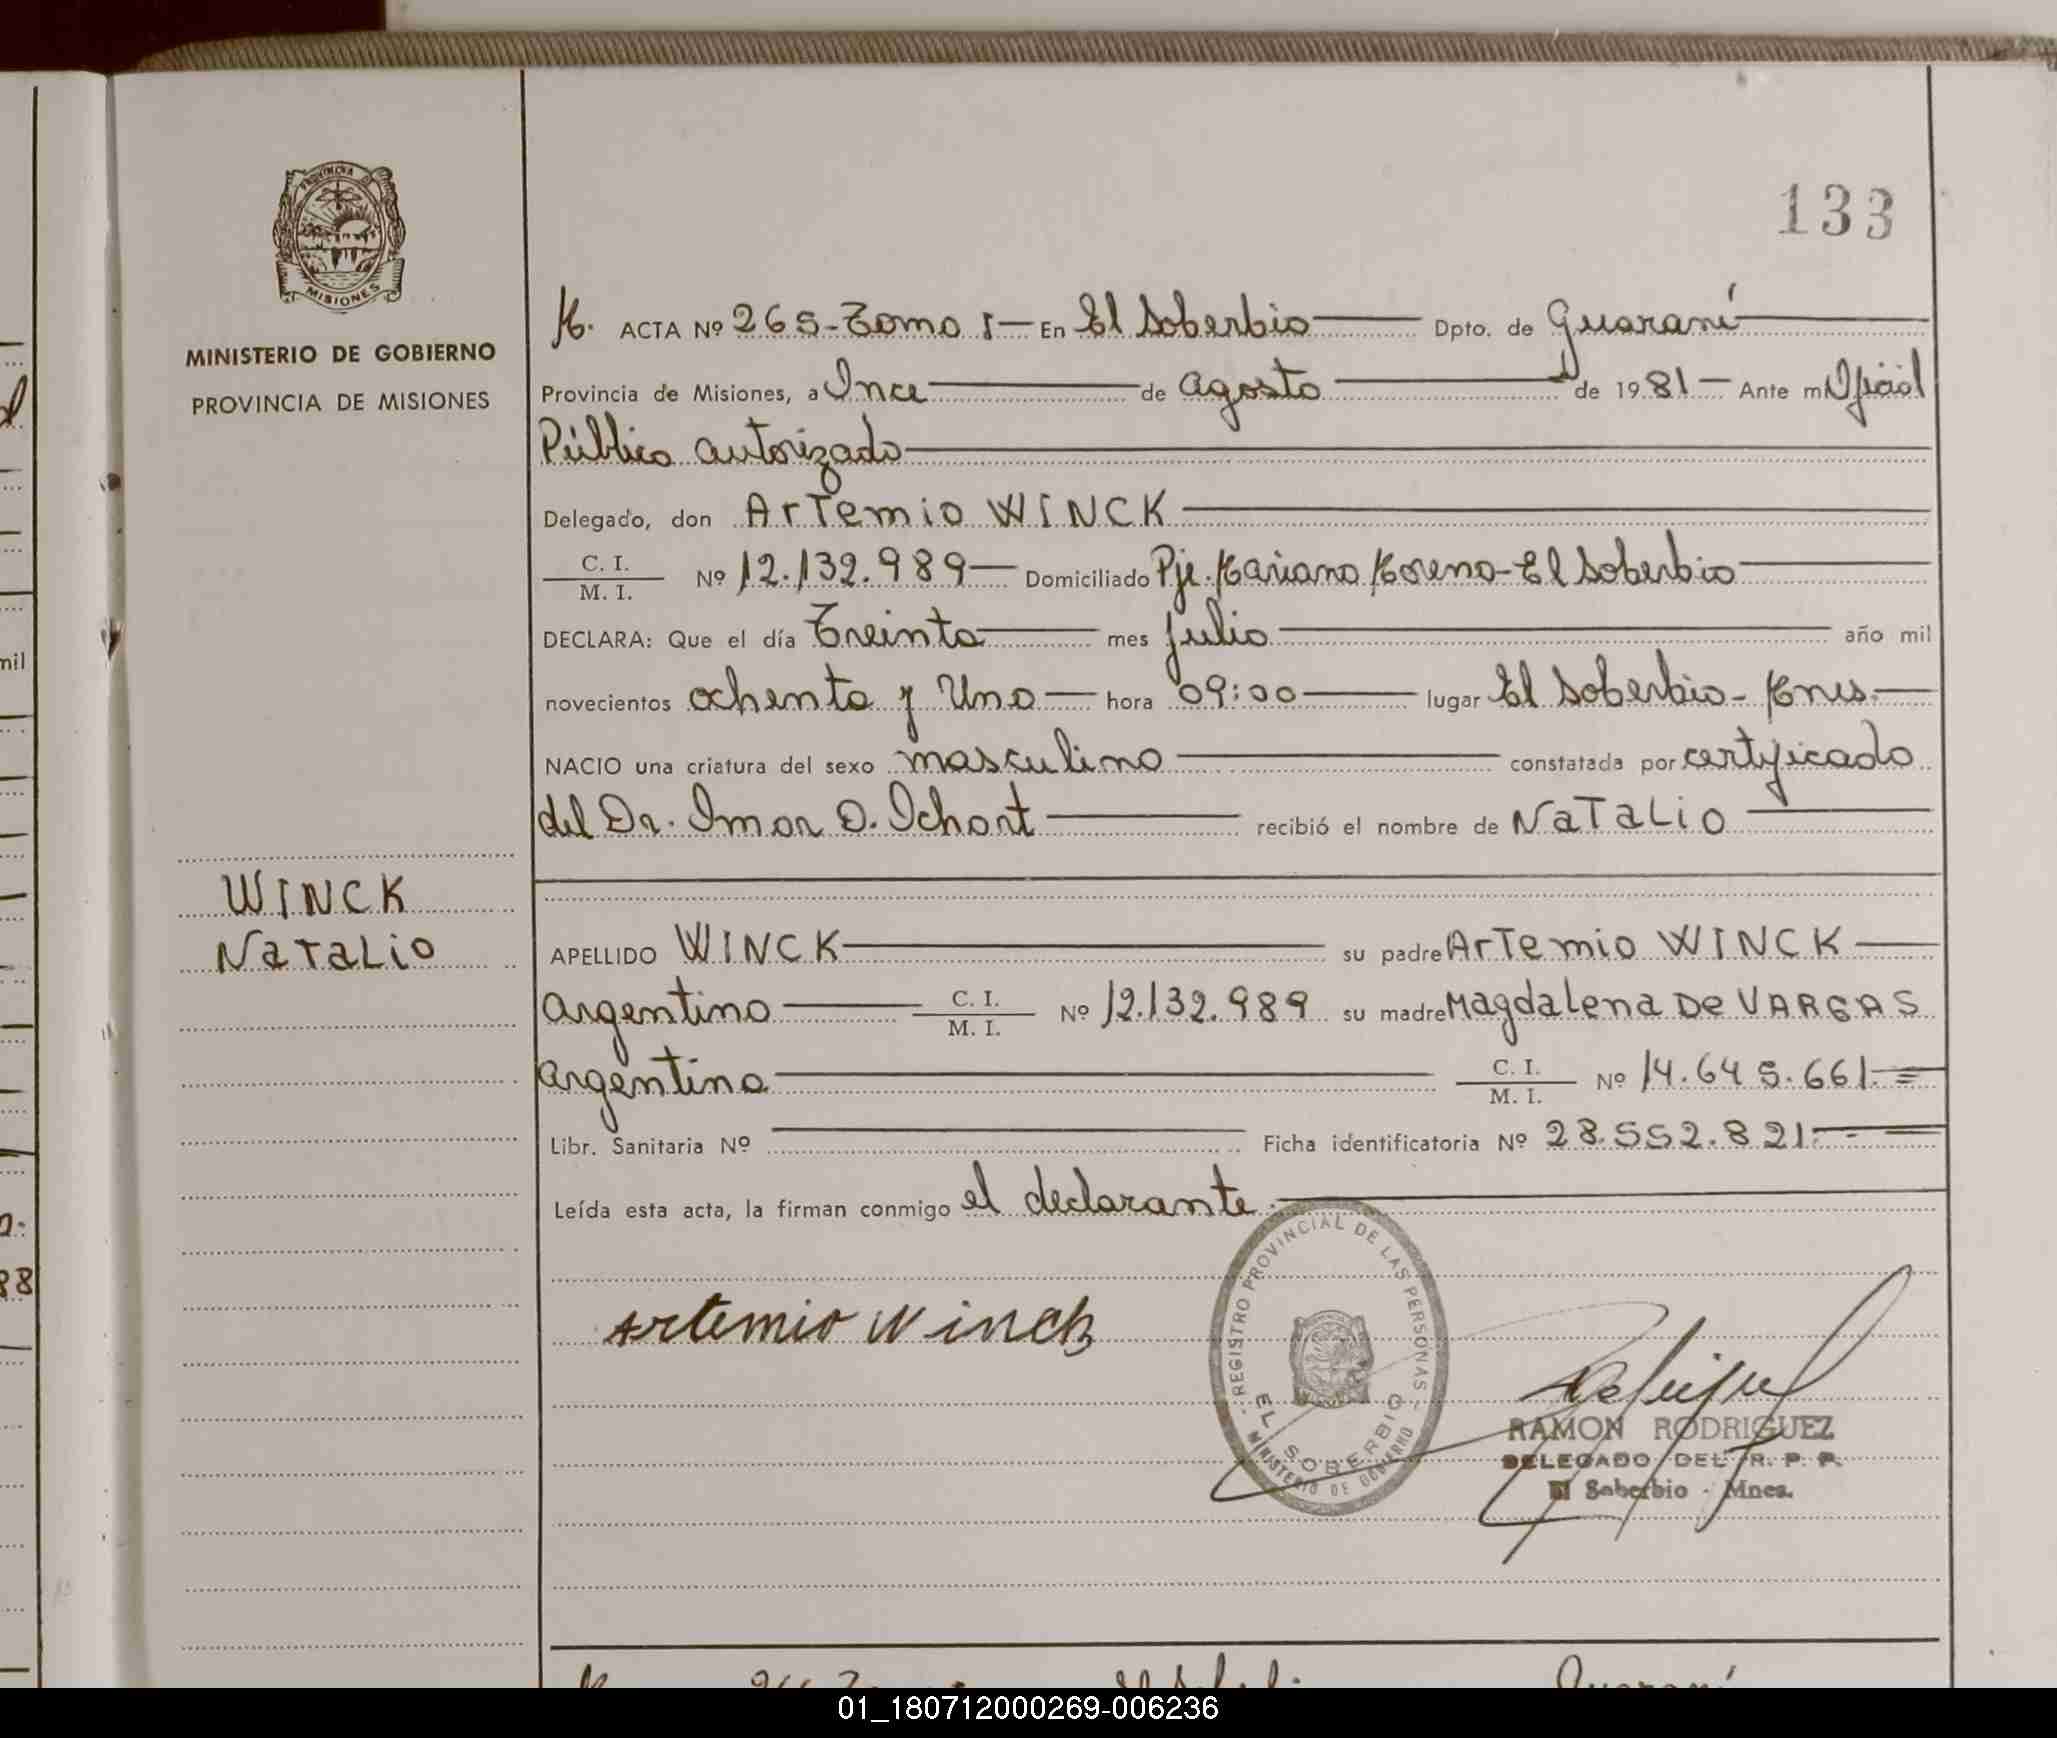 133
PROVINCIA DE
MISIONES
MINISTERIO DE GOBIERNO
PROVINCIA DE MISIONES
M. ACTA Nº 265-Tomo I En El Soberbio Dpto. de Guaraní
Provincia de Misiones, a Once de Agosto de 1981 Ante mi Oficial
Público autorizado
Delegado, don ArTemio WINCK
C. I.
M. I. Nº 12.132.989 Domiciliado Pje. Mariano Moreno-El Soberbio
DECLARA: Que el día Treinta mes julio año mil
novecientos ochenta y Uno hora 09:00 lugar El Soberbio- Mnes.
NACIO una criatura del sexo masculino constatada por certificado
del Dr. Imar O. recibió el nombre de NaTaLio
WINCK
NaTaLio
APELLIDO WINCK su padre ArTemio WINCK
argentino C. I.
M. I. Nº 12.132.989 su madre Magdalena De VARGAS
argentina C. I.
M. I. Nº 14.645.661.=
Libr. Sanitaria Nº Ficha identificatoria Nº 28.552.821.-
Leída esta acta, la firman conmigo el declarante.
Artemio Winck
REGISTRO PROVINCIAL DE LAS PERSONAS
EL SOBERBIO
MINISTERIO DE GOBIERNO
RAMON RODRIGUEZ
DELEGADO DEL R. P. P.
El Soberbio - Mnes.
mil
88
01_180712000269-006236